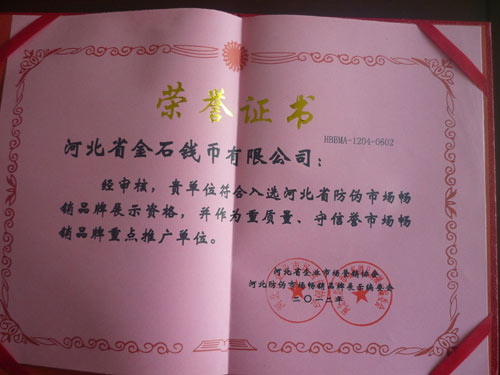 荣誉证书
HBBMA-1204-0602
河北省金石钱币有限公司：
经审核，贵单位符合入选河北省防伪市场畅
销品牌展示资格，并作为重质量、守信誉市场畅
销品牌重点推广单位。
河北省企业市场营销协会
河北防伪市场畅销品牌展示编委会
二〇一二年